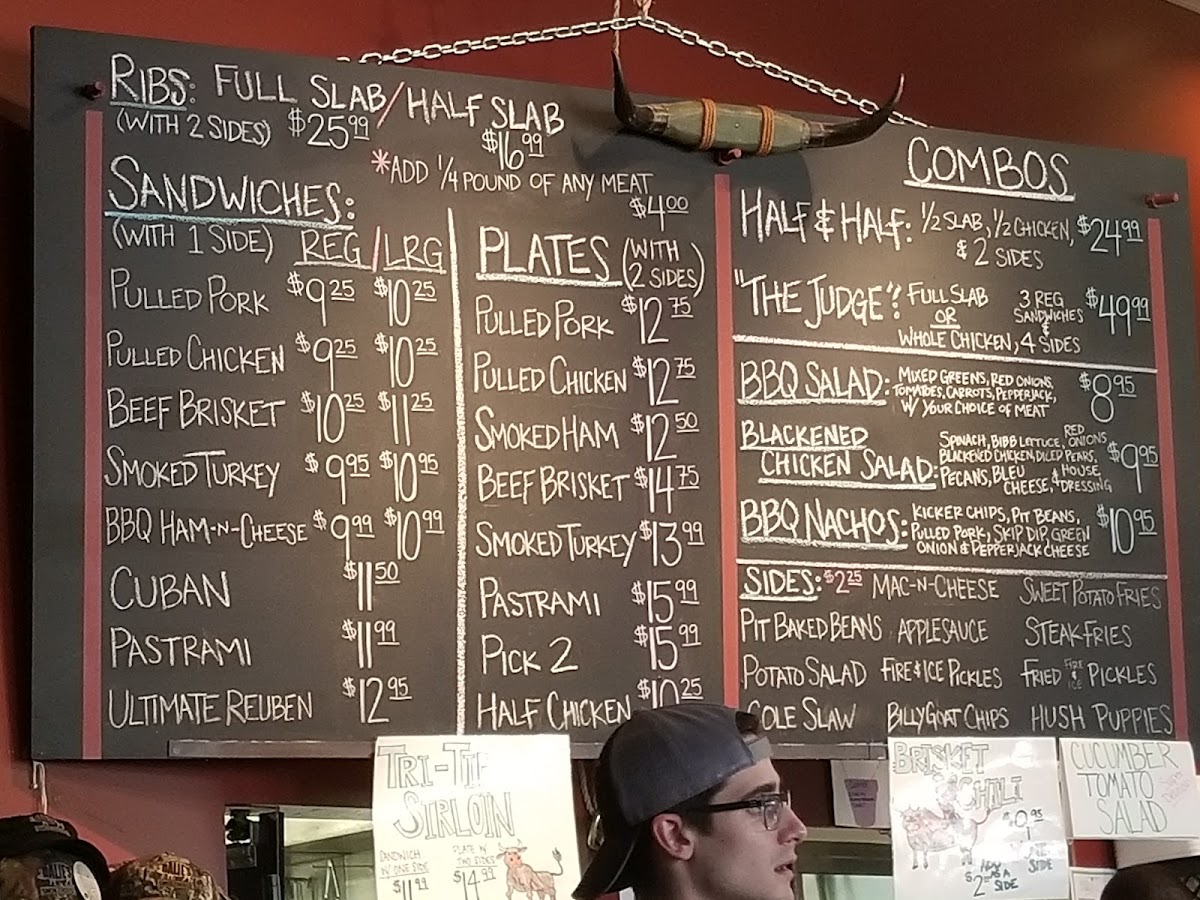 RIBS: FULL SLAB/HALF SLAB
(WITH 2 SIDES) $25.99 $16.99
*ADD 1/4 POUND OF ANY MEAT $4.00
SANDWICHES:
(WITH 1 SIDE) REG/LRG
PULLED PORK $9.25 $10.25
PULLED CHICKEN $9.25 $10.25
BEEF BRISKET $10.25 $11.25
SMOKED TURKEY $9.95 $10.95
BBQ HAM-N-CHEESE $9.99 $10.99
CUBAN $11.50
PASTRAMI $11.99
ULTIMATE REUBEN $12.95
PLATES (WITH 2 SIDES)
PULLED PORK $12.75
PULLED CHICKEN $12.75
SMOKED HAM $12.50
BEEF BRISKET $14.75
SMOKED TURKEY $13.99
PASTRAMI $15.99
PICK 2 $15.99
HALF CHICKEN $10.25
COMBOS
HALF & HALF: 1/2 SLAB, 1/2 CHICKEN, & 2 SIDES $24.99
"THE JUDGE": FULL SLAB OR WHOLE CHICKEN, 3 REG SANDWICHES & 4 SIDES $49.99
BBQ SALAD: MIXED GREENS, RED ONIONS, TOMATOES, CARROTS, PEPPERJACK, W/ YOUR CHOICE OF MEAT $8.95
BLACKENED CHICKEN SALAD: SPINACH, BIBB LETTUCE, RED ONIONS, BLACKENED CHICKEN, DICED PEARS, PECANS, BLEU CHEESE, & HOUSE DRESSING $9.95
BBQ NACHOS: KICKER CHIPS, PIT BEANS, PULLED PORK, SKIP DIP, GREEN ONION & PEPPERJACK CHEESE $10.95
SIDES: $2.25 MAC-N-CHEESE SWEET POTATO FRIES
PIT BAKED BEANS APPLESAUCE STEAK FRIES
POTATO SALAD FIRE & ICE PICKLES FRIED FIRE & ICE PICKLES
COLE SLAW BILLY GOAT CHIPS HUSH PUPPIES
TRI-TIP
SIRLOIN
SANDWICH W ONE SIDE $11.99
PLATE W TWO SIDES $14.99
BRISKET
CHILI
ONE SIDE
ADD AS A SIDE
CUCUMBER
TOMATO
SALAD